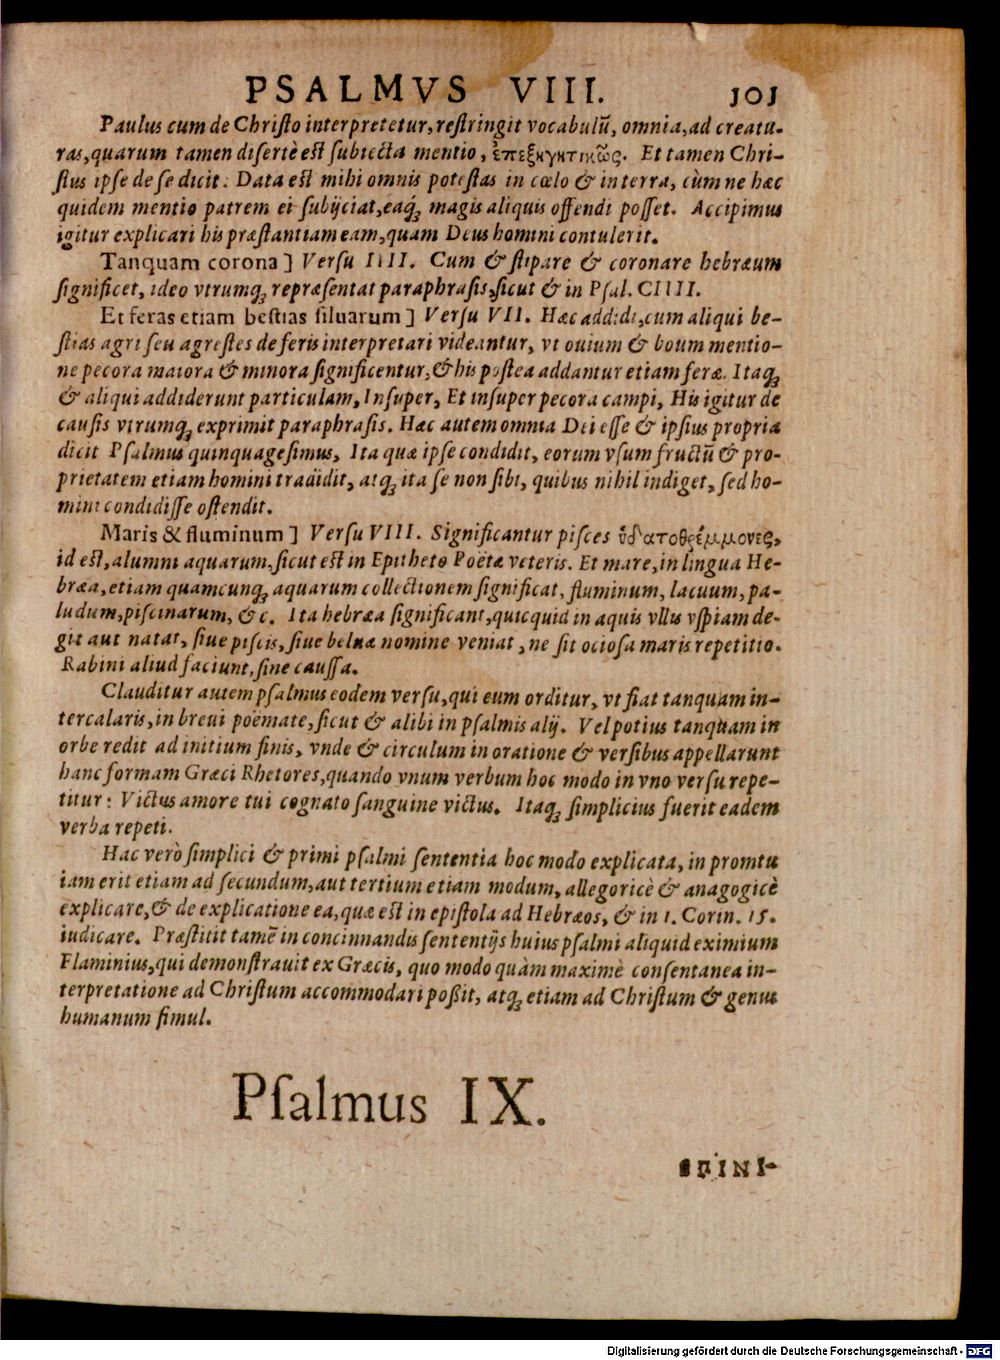 PSALMVS VIII. 101
Paulus cum de Christo interpretetur, restringit vocabulũ, omnia, ad creatu-
ras, quarum tamen disertè est subiecta mentio, ἐπεξηγητικῶς. Et tamen Chri-
stus ipse de se dicit: Data est mihi omnis potestas in cœlo & in terra, cùm ne hæc
quidem mentio patrem ei subijciat, eaq́; magis aliquis offendi posset. Accipimus
igitur explicari his præstantiam eam, quam Deus homini contulerit.
Tanquam corona] Versu IIII. Cum & stipare & coronare hebræum
significet, ideo vtrumq; repræsentat paraphrasis, sicut & in Psal. CIIII.
Et feras etiam bestias siluarum] Versu VII. Hæc addidi, cum aliqui be-
stias agri seu agrestes de feris interpretari videantur, vt ouium & boum mentio-
ne pecora maiora & minora significentur, & his postea addantur etiam feræ. Itaq;
& aliqui addiderunt particulam, Insuper, Et insuper pecora campi, His igitur de
causis vtrumq; exprimit paraphrasis. Hæc autem omnia Dei esse & ipsius propria
dicit Psalmus quinquagesimus, Ita quæ ipse condidit, eorum vsum fructũ & pro-
prietatem etiam homini tradidit, atq; ita se non sibi, quibus nihil indiget, sed ho-
mini condidisse ostendit.
Maris & fluminum] Versu VIII. Significantur pisces ὑδατοθρέμμονες,
id est, alumni aquarum, sicut est in Epitheto Poëtæ veteris. Et mare, in lingua He-
bræa, etiam quamcunq; aquarum collectionem significat, fluminum, lacuum, pa-
ludum, piscinarum, &c. Ita hebræa significant, quicquid in aquis vllis vspiam de-
git aut natat, siue piscis, siue beluæ nomine veniat, ne sit ociosa maris repetitio.
Rabini aliud faciunt, sine caussa.
Clauditur autem psalmus eodem versu, qui eum orditur, vt fiat tanquam in-
tercalaris, in breui poëmate, sicut & alibi in psalmis alij. Vel potius tanquam in
orbe redit ad initium finis, vnde & circulum in oratione & versibus appellarunt
hanc formam Græci Rhetores, quando vnum verbum hoc modo in vno versu repe-
titur: Victus amore tui cognato sanguine victus. Itaq; simplicius fuerit eadem
verba repeti.
Hac verò simplici & primi psalmi sententia hoc modo explicata, in promtu
iam erit etiam ad secundum, aut tertium etiam modum, allegoricè & anagogicè
explicare, & de explicatione ea, quæ est in epistola ad Hebræos, & in 1. Corin. 15.
iudicare. Præstitit tamẽ in concinnandis sententijs huius psalmi aliquid eximium
Flaminius, qui demonstrauit ex Græcis, quo modo quàm maximè consentanea in-
terpretatione ad Christum accommodari poßit, atq; etiam ad Christum & genus
humanum simul.
Psalmus IX.
EPINI-
Digitalisierung gefördert durch die Deutsche Forschungsgemeinschaft - DFG